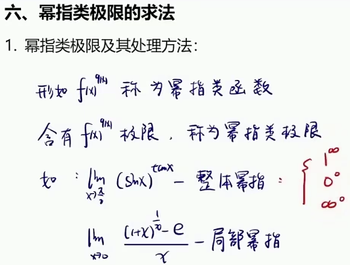 六、幂指类极限的求法
1. 幂指类极限及其处理方法:
形如 f(x)^g(x) 称为幂指类函数
含有 f(x)^g(x) 极限, 称为幂指类极限
如: lim x→π/2 (sinx)^tanx — 整体幂指: { 1^∞ 0^0 ∞^0
lim x→0 ((1+x)^(1/x) - e)/x — 局部幂指